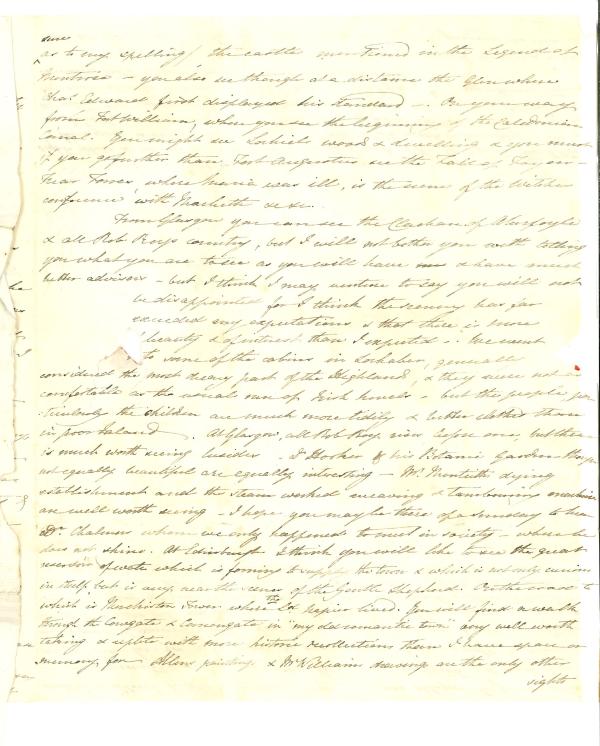 sure
as to my spelling / the castle mentioned in the Legend of
Montrose – you also see though at a distance the Glen where
Chas. Edward first displayed his Standard –. On your way
from Fort William, where you see the beginning of the Caledonian
Canal. You might see Lochiels wood & dwelling & you must
if you go further than Fort Augustus see the Fall of
Near Forres, where Maria was ill, is the scene of the Witches
conference with Macbeth &c &c.
From Glasgow you can see the Clachan of Aberfoyle
& all Rob Roys country, but I will not bother you with telling
you what you are to see as you will have & have much
better advisers – but I think I may venture to say you will not
be disappointed for I think the scenery has far
exceeded my expectations & that there is more
beauty & of interest than I expected –. We went
to some of the cabins in Lochaber, generally
considered the most dreary part of the Highland, & they were not so
comfortable as the usual run of Irish hovels – but the people par
-ticularly the children are much more tidily & better clothed than
in poor Ireland. At Glasgow, all Rob Roy rises before one, but there
is much worth seeing besides. Dr Hooker & his Botanic Garden
not equally beautiful are equally interesting – Mr. Monteith dying
establishment and the steam worked weaving & tambouring machines
are well worth seeing – I hope you may be there of a Sunday to hear
Dr. Chalmers whom we only happened to meet in society – where he
does not shine. At Edinburgh I think you will like to see the great
reservoir of water which is forming to supply the town & which is not only curious
in itself but is very near the scenes of the Gentle Shepherd. On the road to
which is Merchiston Tower where the Ld Napier lived. You will find a walk
through the Cowgate & Canongate in "my dear romantic town" very well worth
taking & replete with more historic recollections than I have space or
memory for Allens painting & Mr Williams drawings are the only other
sights